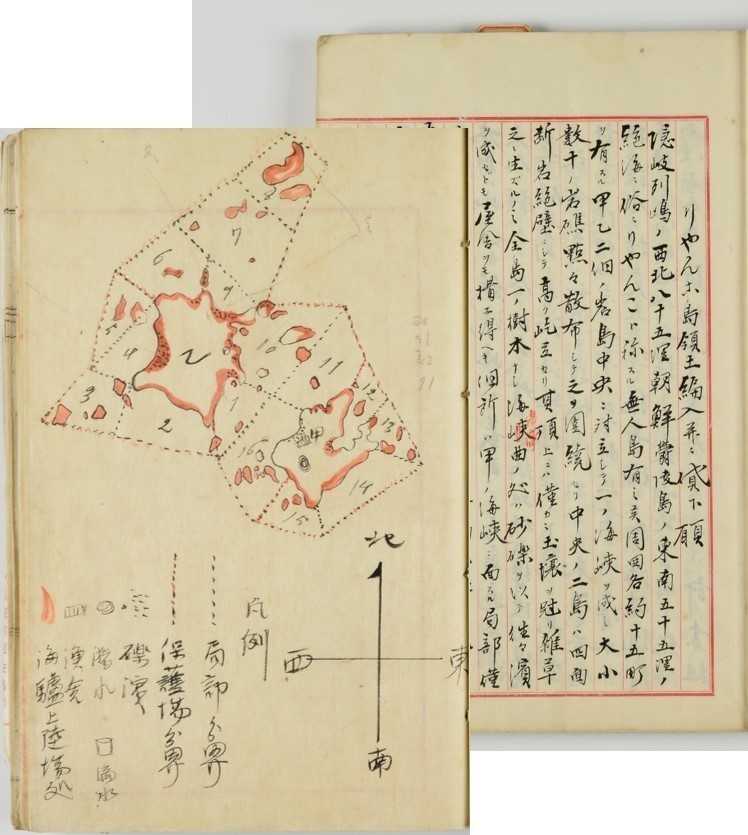 りやんこ島領土編入并ニ貸下願
隠岐列嶋ノ西北八十五浬朝鮮鬱陵島ノ東南五十五浬ノ
絶海ニ俗ニりやんこト称スル無人島有之候周囲各約十五町
ヲ有スル甲乙二個ノ岩島中央ニ対立シテ一ノ海峡ヲ成シ大小
数十ノ岩礁點々散布シテ之ヲ囲繞セリ中央ノ二島ハ四面
断岩絶壁ニシテ高ク屹立セリ其頂上ニハ僅カニ土壌ヲ冠リ雑草
之ニ生ズルノミ全島一ノ樹木ナシ海峡曲ノ処ハ砂礫ヲ以テ往々濱
ヲ成セども屋舎ヲ構エ得ヘキ個所ハ甲ノ海峡ニ面スル局部僅
7
6
9
5
4
乙
3
2
1
10
11
12
13
甲
16
14
15
北
東
西
南
凡例
局部分界
保護場分界
礫濱
潴水
漁舎
海驢上陸場処